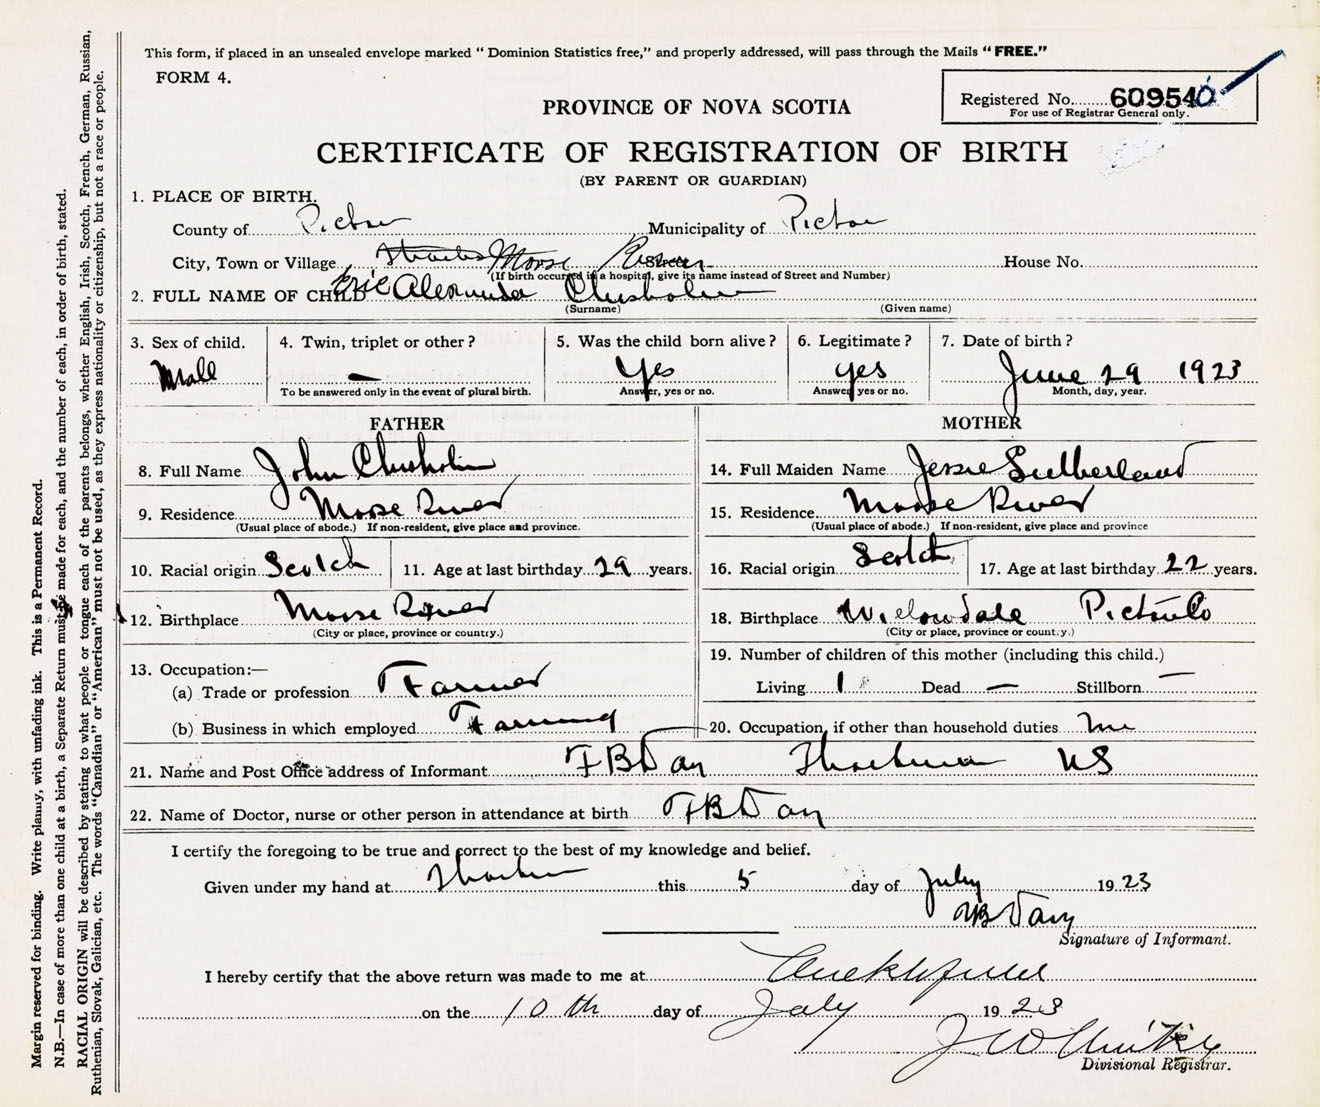 This form, if placed in an unsealed envelope marked "Dominion Statistics free," and properly addressed, will pass through the Mails "FREE."
FORM 4.
Registered No. 609540
For use of Registrar General only.
PROVINCE OF NOVA SCOTIA
CERTIFICATE OF REGISTRATION OF BIRTH
(BY PARENT OR GUARDIAN)
1. PLACE OF BIRTH.
County of Pictou Municipality of Pictou
City, Town or Village Moose River House No.
(If birth occurred in a hospital, give its name instead of Street and Number)
2. FULL NAME OF CHILD Eric Alexander Chisholm
(Surname) (Given name)
3. Sex of child. 4. Twin, triplet or other? 5. Was the child born alive? 6. Legitimate? 7. Date of birth?
Mall — Yes yes June 29 1923
To be answered only in the event of plural birth. Answer, yes or no. Answer yes or no. Month, day, year.
FATHER
8. Full Name John Chisholm
9. Residence Moose River
(Usual place of abode.) If non-resident, give place and province.
10. Racial origin Scotch 11. Age at last birthday 29 years.
12. Birthplace Moose River
(City or place, province or country.)
13. Occupation:—
(a) Trade or profession Farmer
(b) Business in which employed Farming
MOTHER
14. Full Maiden Name Jessie Sutherland
15. Residence Moose River
(Usual place of abode.) If non-resident, give place and province
16. Racial origin Scotch 17. Age at last birthday 22 years.
18. Birthplace Willowdale Pictou Co
(City or place, province or country.)
19. Number of children of this mother (including this child.)
Living 1 Dead — Stillborn —
20. Occupation, if other than household duties
21. Name and Post Office address of Informant F B Day Thorburn NS
22. Name of Doctor, nurse or other person in attendance at birth F B Day
I certify the foregoing to be true and correct to the best of my knowledge and belief.
Given under my hand at Thorburn this 5 day of July 1923
F B Day
Signature of Informant.
I hereby certify that the above return was made to me at
on the 10th day of July 1923
J W
Divisional Registrar.
Margin reserved for binding. Write plainly, with unfading ink. This is a Permanent Record.
N.B.—In case of more than one child at a birth, a Separate Return must be made for each, and the number of each, in order of birth, stated.
RACIAL ORIGIN will be described by stating to what people or tongue each of the parents belongs, whether English, Irish, Scotch, French, German, Russian,
Ruthenian, Slovak, Galician, etc. The words "Canadian" or "American" must not be used, as they express nationality or citizenship, but not a race or people.